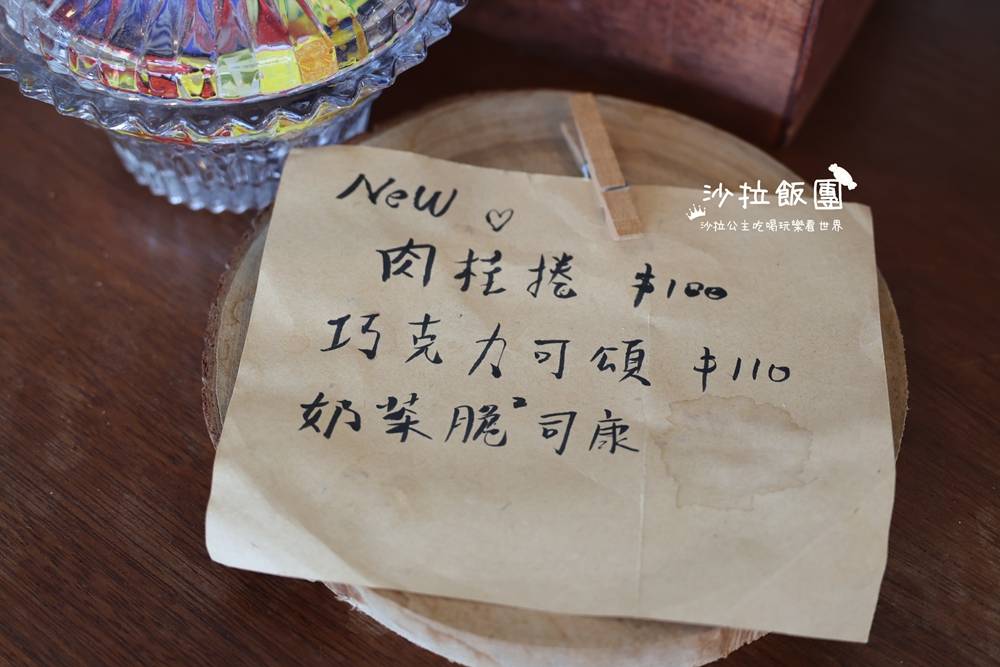 New ♡
肉桂捲 $100
巧克力可頌 $110
奶茶脆²司康
沙拉飯團
沙拉公主吃喝玩樂看世界